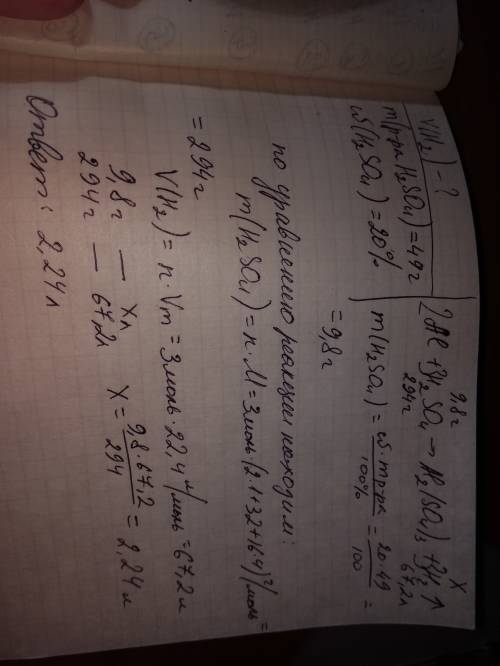 V(H₂) - ?
m(р-ра H₂SO₄) = 49г
ω(H₂SO₄) = 20%
9,8г X
2Al + 3H₂SO₄ → Al₂(SO₄)₃ + 3H₂↑
294г 67,2л
m(H₂SO₄) = ω·mр-ра/100% = 20·49/100 =
= 9,8г
по уравнению реакции находим:
m(H₂SO₄) = n·M = 3моль·(2·1+32+16·4)г/моль =
= 294г
V(H₂) = n·Vm = 3моль·22,4 л/моль = 67,2л
9,8г — Xл
294г — 67,2л
X = 9,8·67,2/294 = 2,24л
Ответ: 2,24л